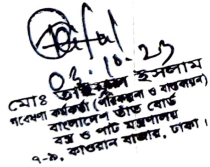 03.10.23
মোঃ ইসলাম
গবেষণা কর্মকর্তা (পরিকল্পনা ও বাস্তবায়ন)
বাংলাদেশ তাঁত বোর্ড
বস্ত্র ও পাট মন্ত্রণালয়
কাওরান বাজার, ঢাকা।